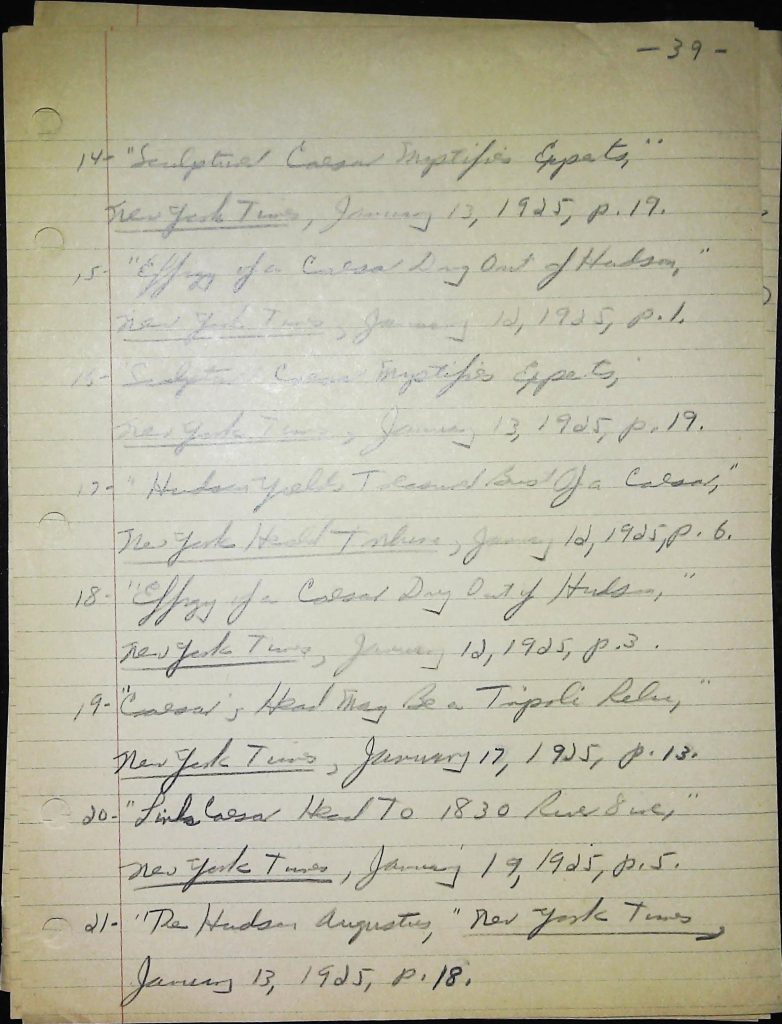 - 39 -
14- "Sculptured Caesar Mystifies Experts,"
New York Times, January 13, 1925, p. 19.
15- "Effigy of a Caesar Dug Out of Hudson,"
New York Times, January 12, 1925, p. 1.
16- Sculptured Caesar Mystifies Experts,
New York Times, January 13, 1925, p. 19.
17- "Hudson Yields Treasured Bust Of a Caesar,"
New York Herald Tribune, January 12, 1925, p. 6.
18- "Effigy of a Caesar Dug Out of Hudson,"
New York Times, January 12, 1925, p. 3.
19- "Caesar's Head May Be a Tripoli Relic,"
New York Times, January 17, 1925, p. 13.
20- "Links Caesar Head To 1830 River
New York Times, January 19, 1925, p. 5.
21- "The Hudson Augustus," New York Times,
January 13, 1925, p. 18.